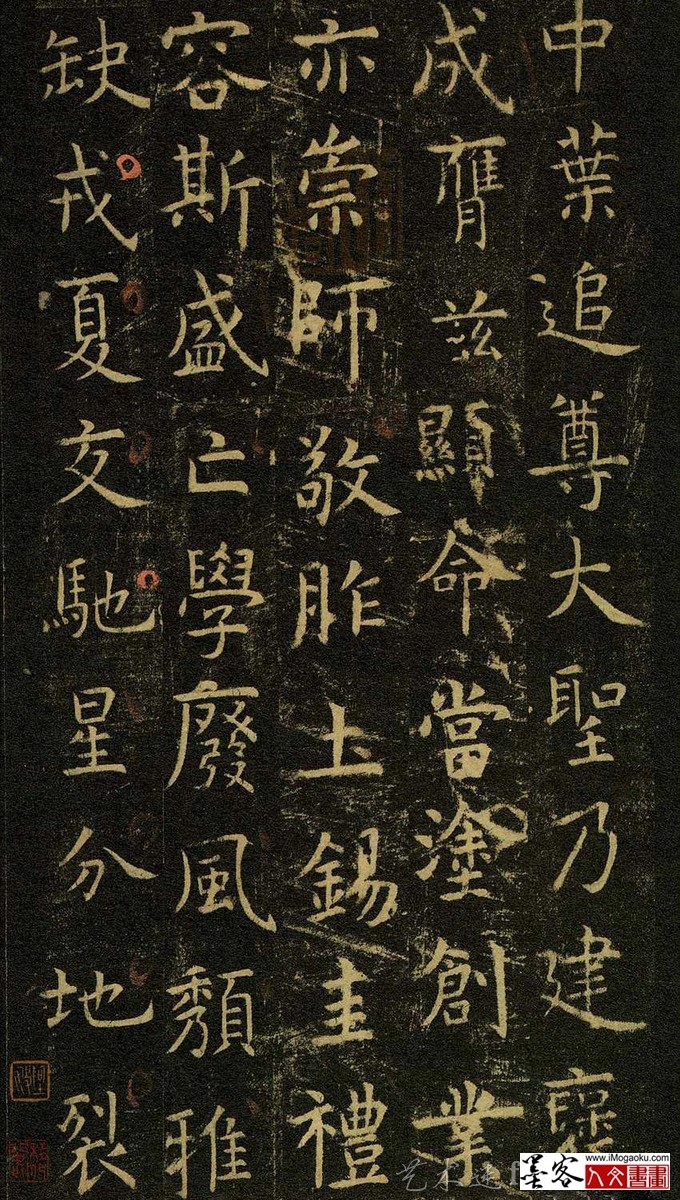 中葉追尊大聖乃建褒
成膺兹顯命當塗創業
亦崇師敬胙土錫圭禮
容斯盛亡學廢風頽雅
缺戎夏交馳星分地裂
墨客
www.iMogaoku.com
人文書畫